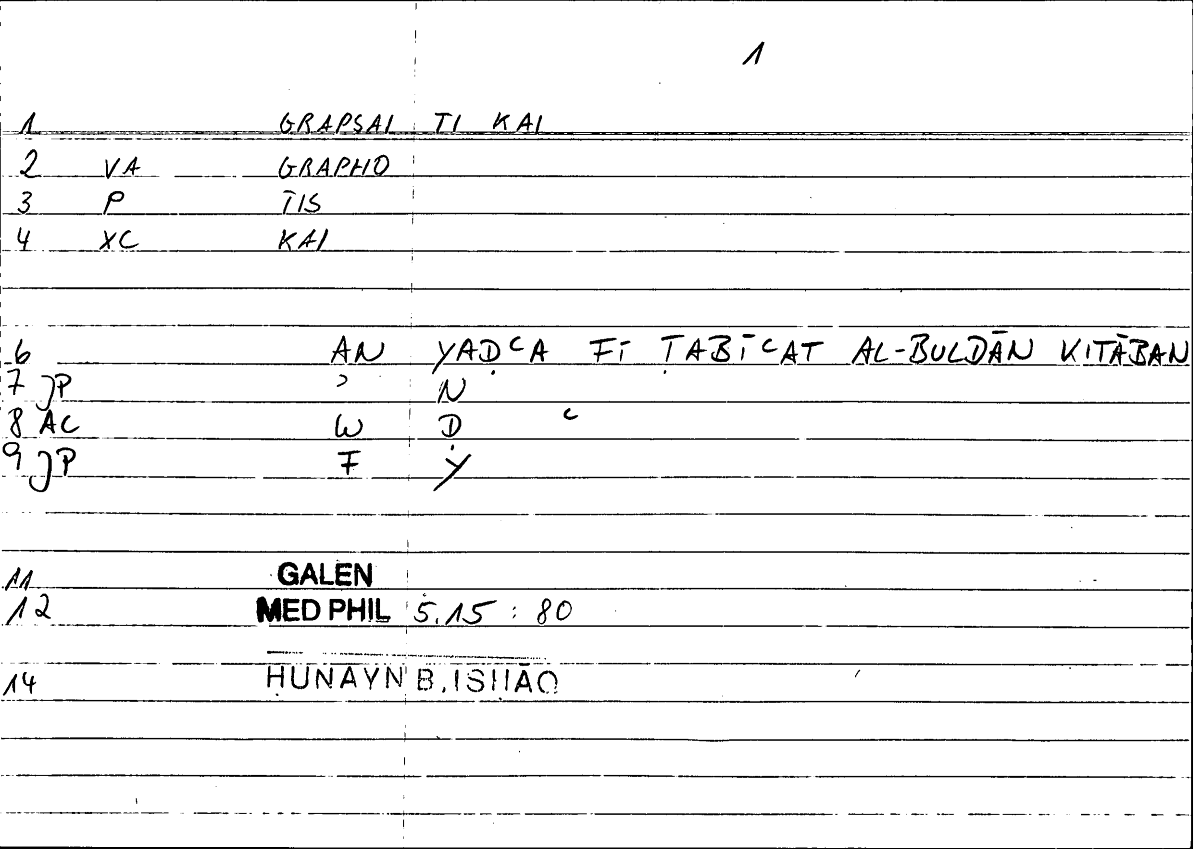 1
1 GRAPSAI TI KAI
2 VA GRAPHO
3 P TIS
4 XC KAI
6 AN YAḌʿA FĪ ṬABĪʿAT AL-BULDĀN KITĀBAN
7 JP ʾ N
8 AC W Ḍ ʿ
9 JP F Y
11 GALEN
12 MED PHIL 5.15 : 80
14 ḤUNAYN B. ISḤĀQ